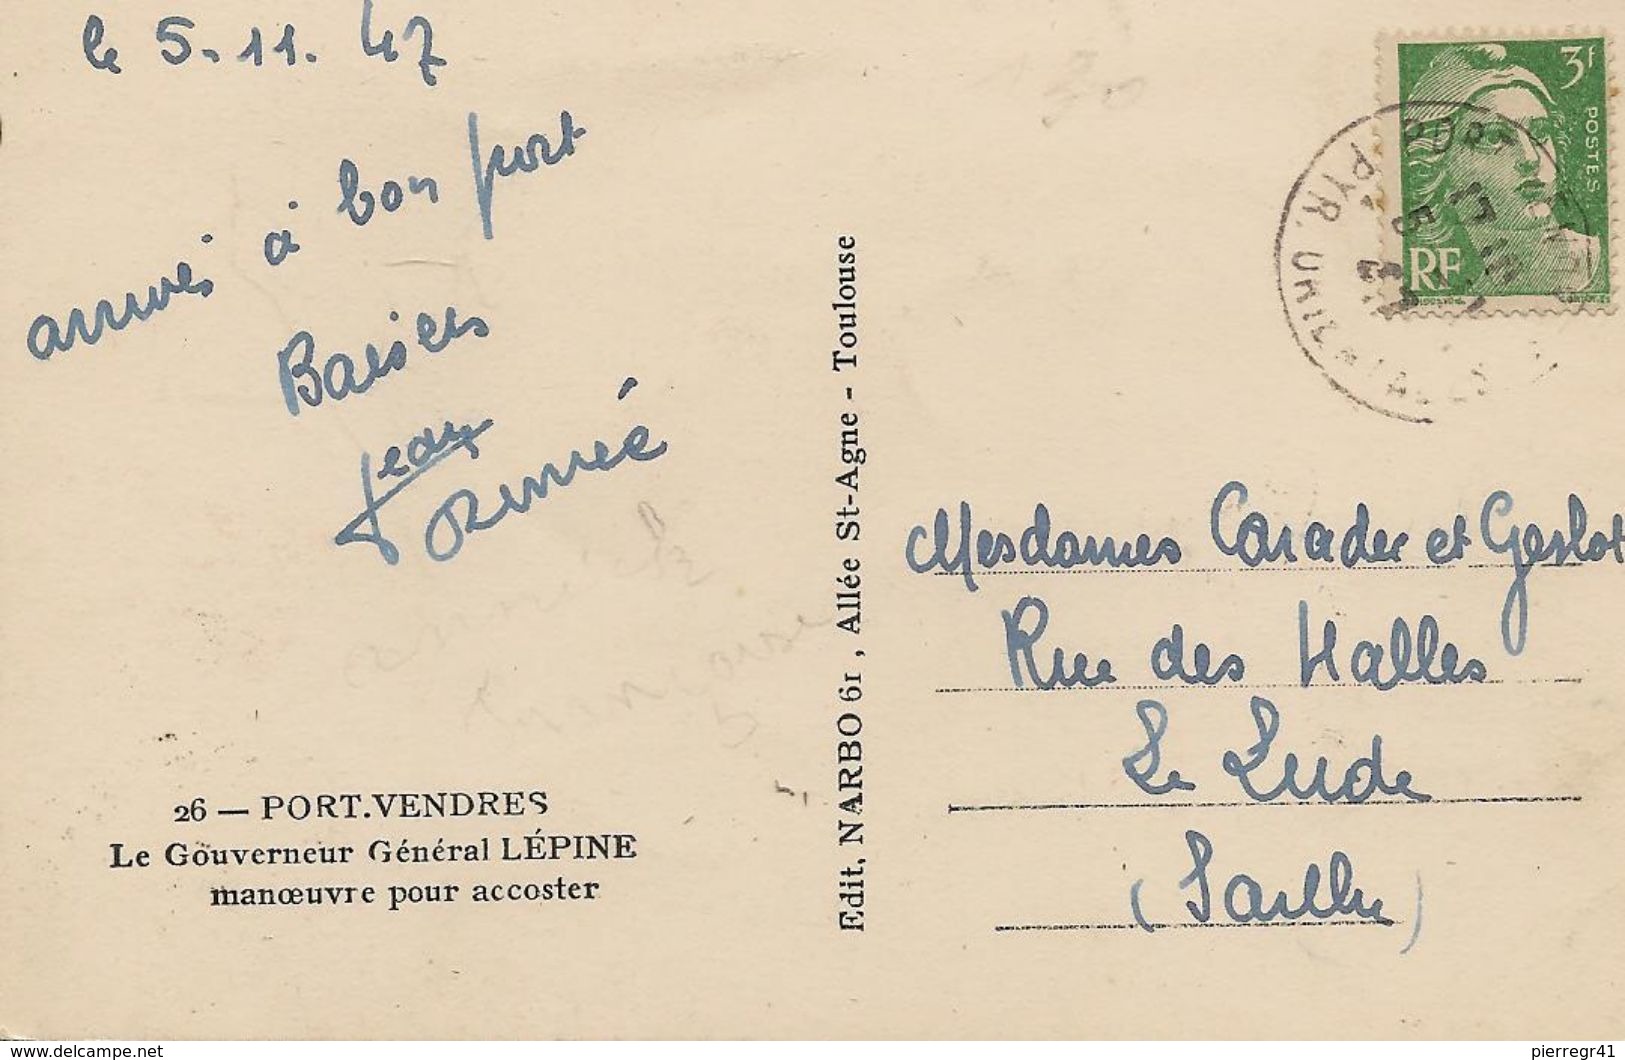 le 5.11.47
arrivés à bon port
Baisers
Jean
Renée
26 — PORT.VENDRES
Le Gouverneur Général LÉPINE
manœuvre pour accoster
Edit. NARBO 61, Allée St-Agne - Toulouse
3f
POSTES
RF
PORT VENDRES
17
5
PYR. ORIENTALES
Mesdames Carader et Geslot
Rue des Halles
Le Lude
(Sarthe)
www.delcampe.net
pierregr41